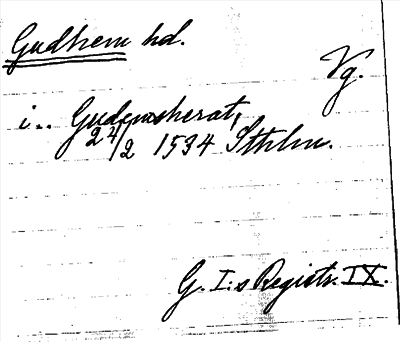 Gudhem hd.
Vg.
i.. Gudemsherat,
24/2 1534 Sthlm.
G. I:s Registr. IX.